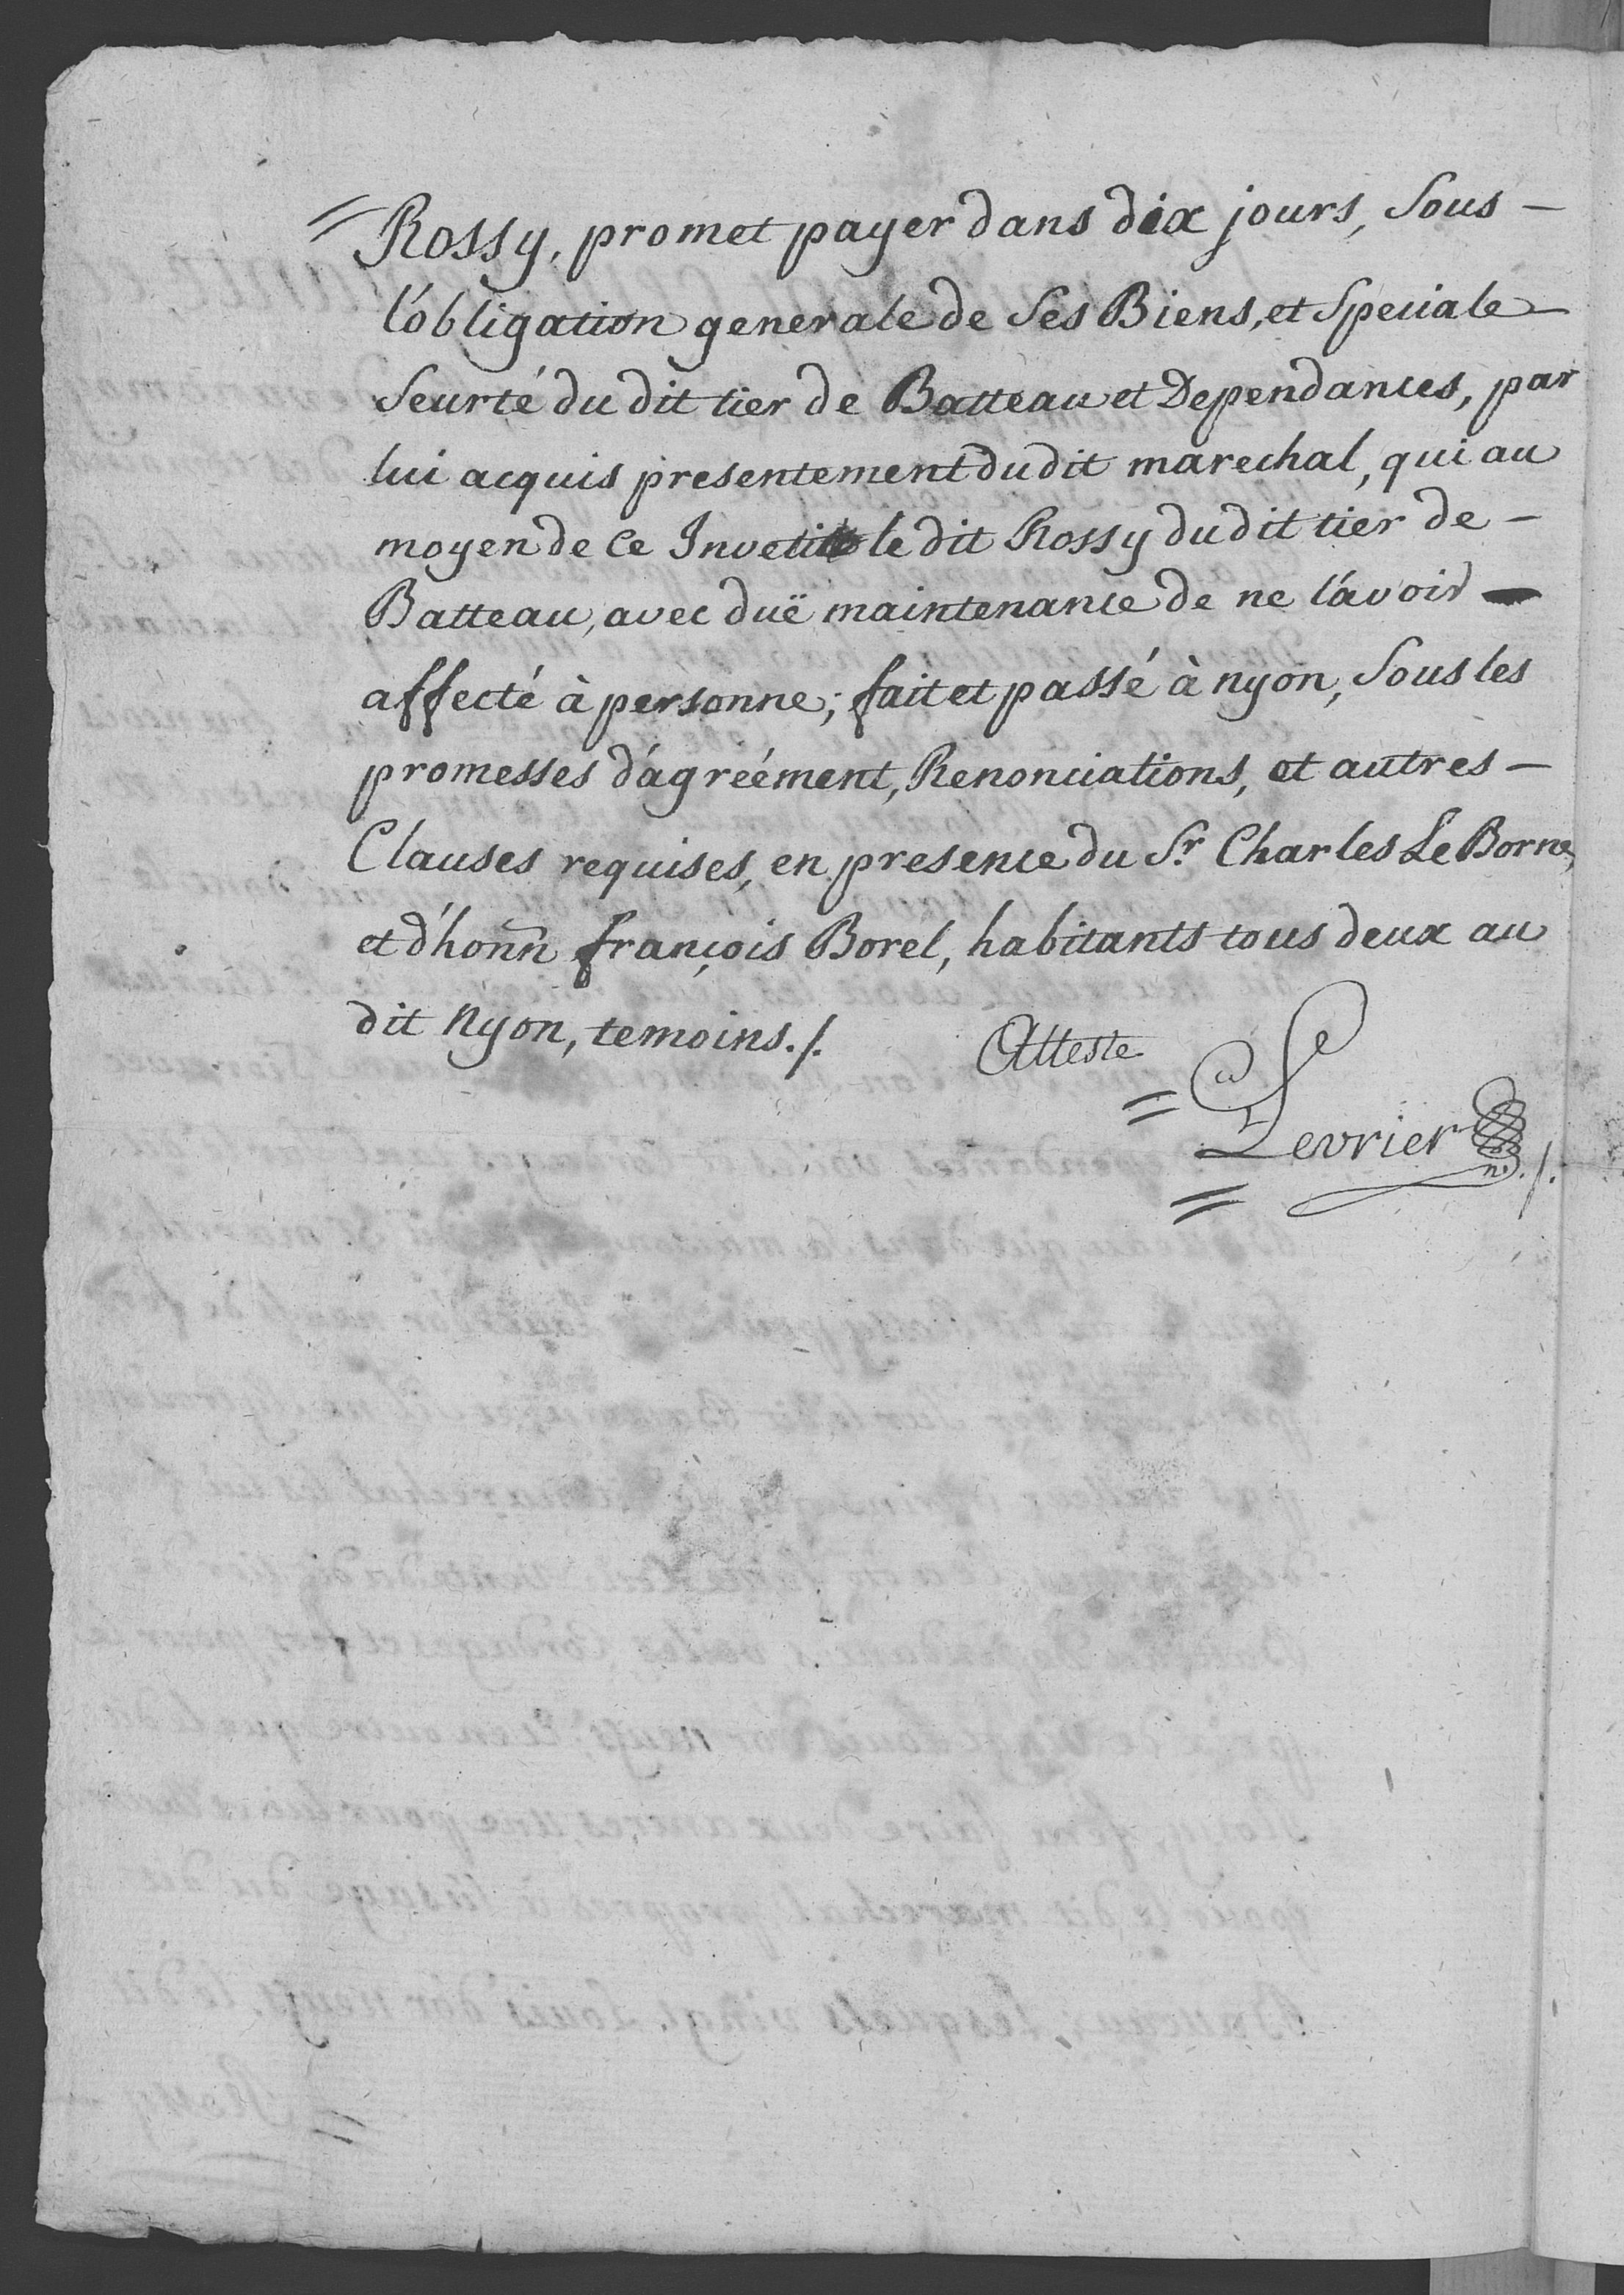 Rossy, promet payer dans dix jours, Sous –
l'obligation generale de Ses Biens, et Speciale –
Seurté du dit tier de Batteau et Dependances, par
lui acquis presentement du dit marechal, qui au
moyen de Ce le dit Rossy du dit tier de –
Batteau, avec duë maintenance de ne l'avoir –
affecté à personne; fait et passé à nyon, Sous les
promesses d'agréément, Renonciations, et autres –
Clauses requises, en presence du Sr. Charles Le Borne,
et d'honn françois Borel, habitants tous deux au
dit Nyon, temoins./.
Atteste
Levrier